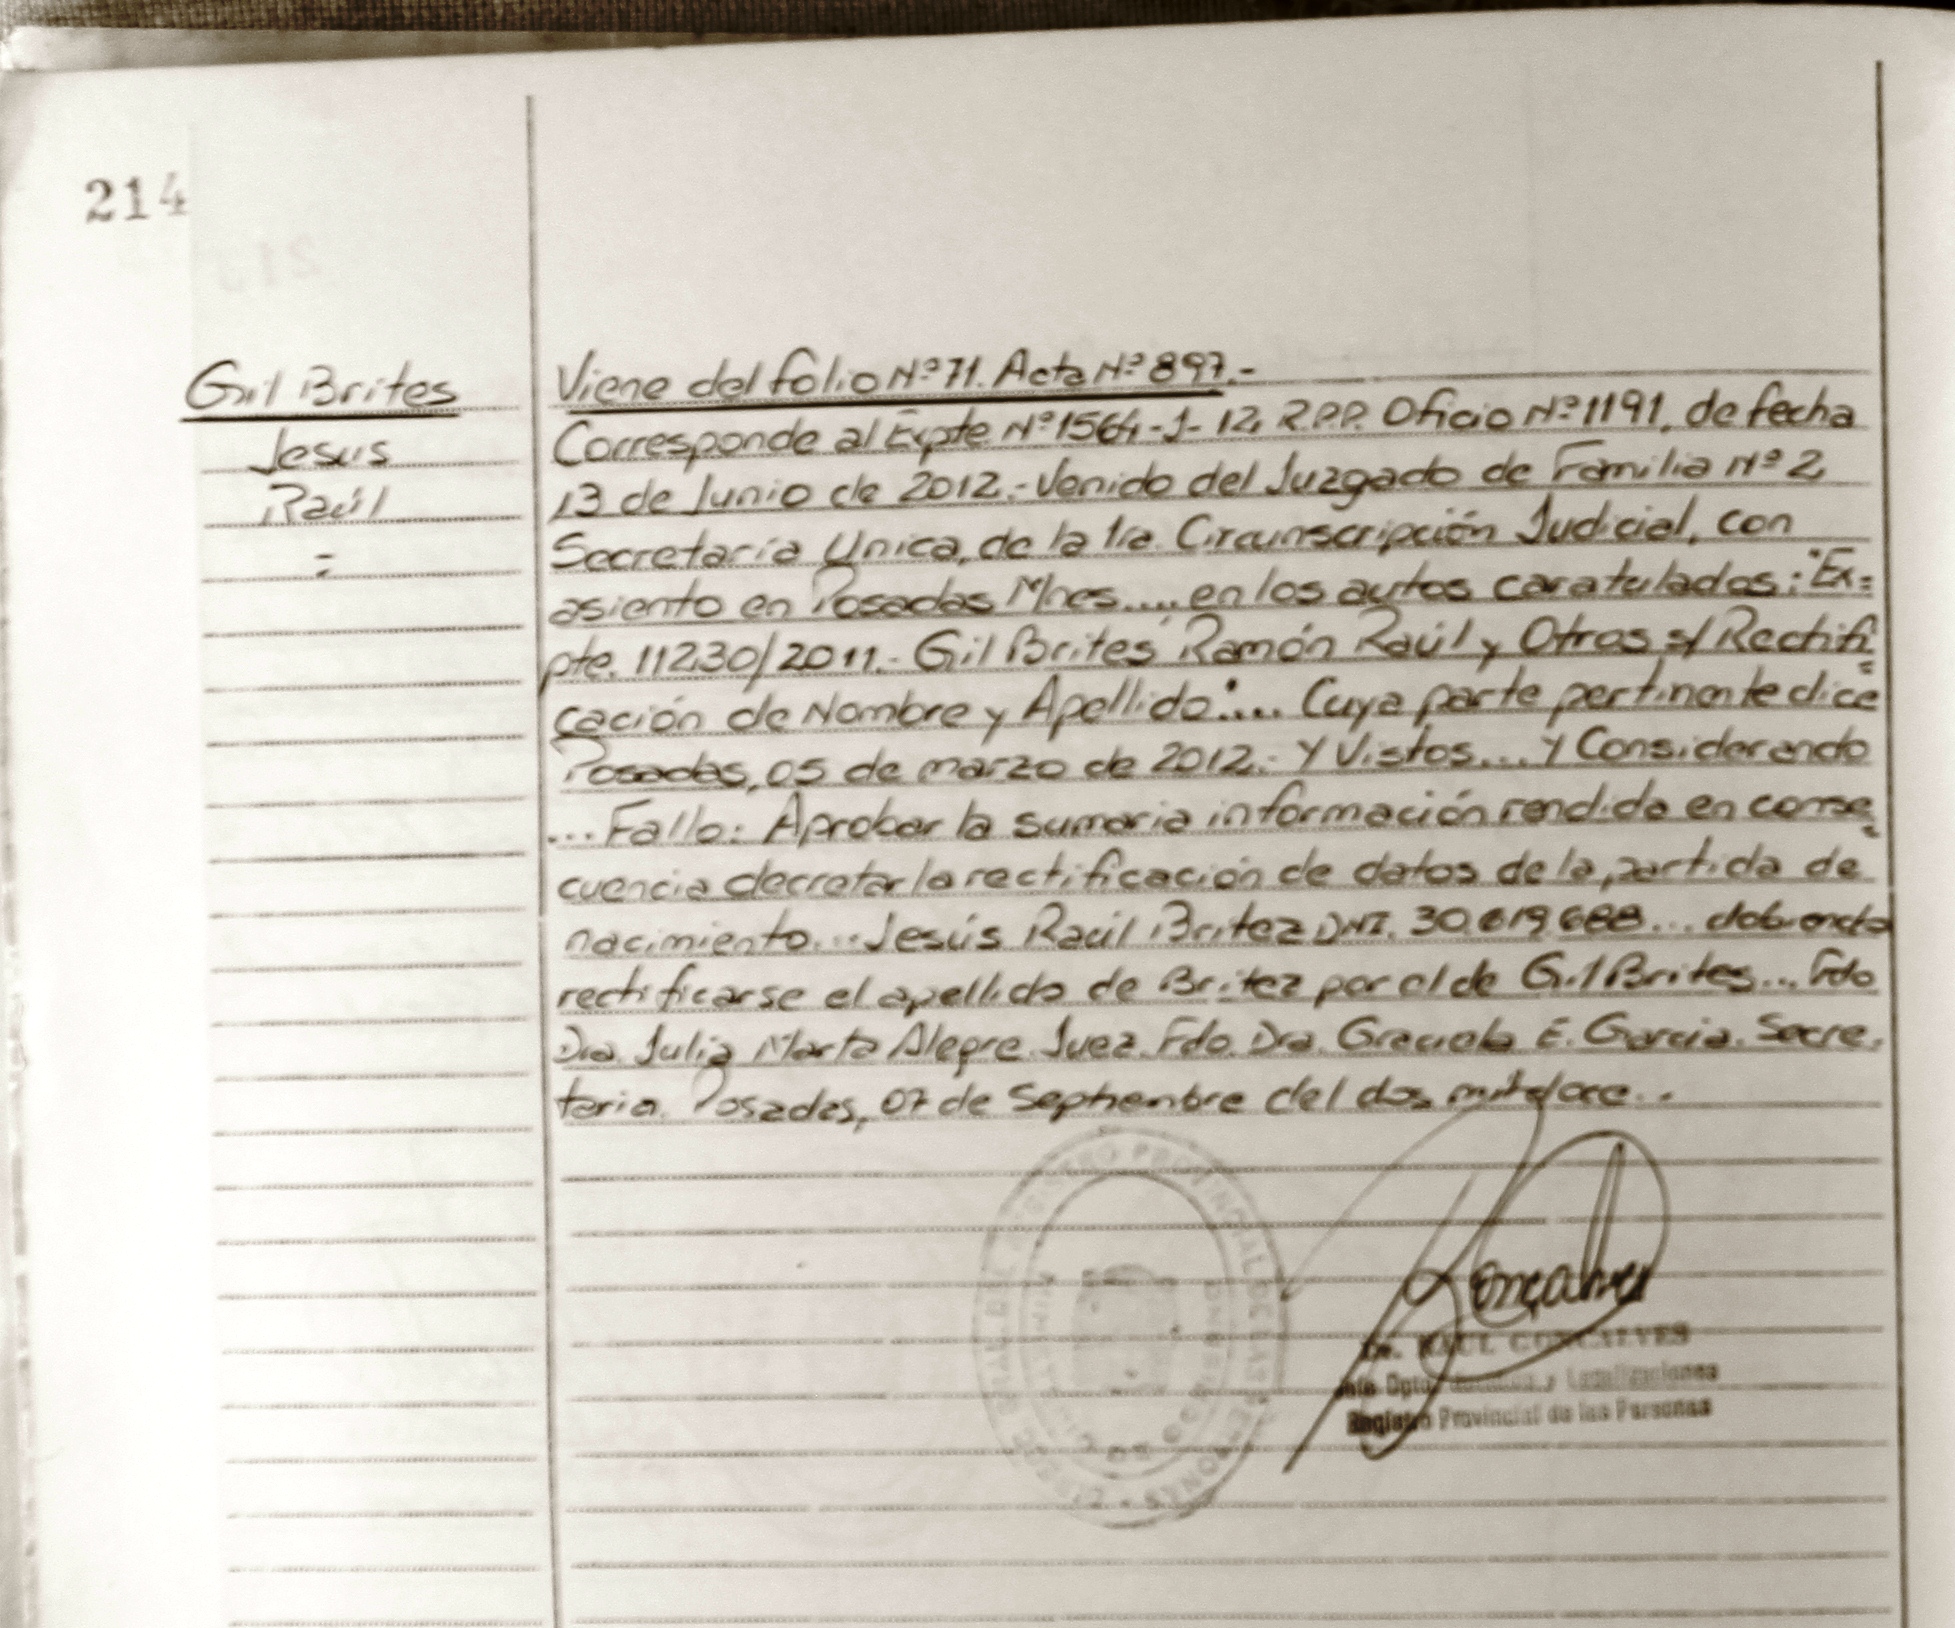 214
Gil Brites
Jesus
Raúl
=
Viene del folio Nº 71. Acta Nº 897.-
Corresponde al Expte Nº 1564-J-12, R.P.P. Oficio Nº 1191, de fecha
13 de Junio de 2012.- Venido del Juzgado de Familia Nº 2
Secretaría Unica, de la 1ra. Circunscripción Judicial, con
asiento en Posadas Mnes.... en los autos caratulados: "Ex=
pte. 11230/2011.- Gil Brites Ramón Raúl y Otros s/ Rectifi=
cación de Nombre y Apellido".... Cuya parte pertinente dice
Posadas, 05 de marzo de 2012.- Y Vistos.... Y Considerando
... Fallo: Aprobar la sumaria información rendida en conse=
cuencia decretar la rectificación de datos de la partida de
nacimiento... Jesús Raúl Britez DNI. 30.619.688... debiendo
rectificarse el apellido de Britez por el de Gil Brites... Fdo
Dra. Julia Marta Alegre. Juez. Fdo. Dra. Graciela E. Garcia. Secre-
taria. Posadas, 07 de Septiembre del dos mil doce..
Gonçalves
Dr. RAUL GONCALVES
Dpto. y Legalizaciones
Registro Provincial de las Personas
REGISTRO PROVINCIAL DE LAS PERSONAS